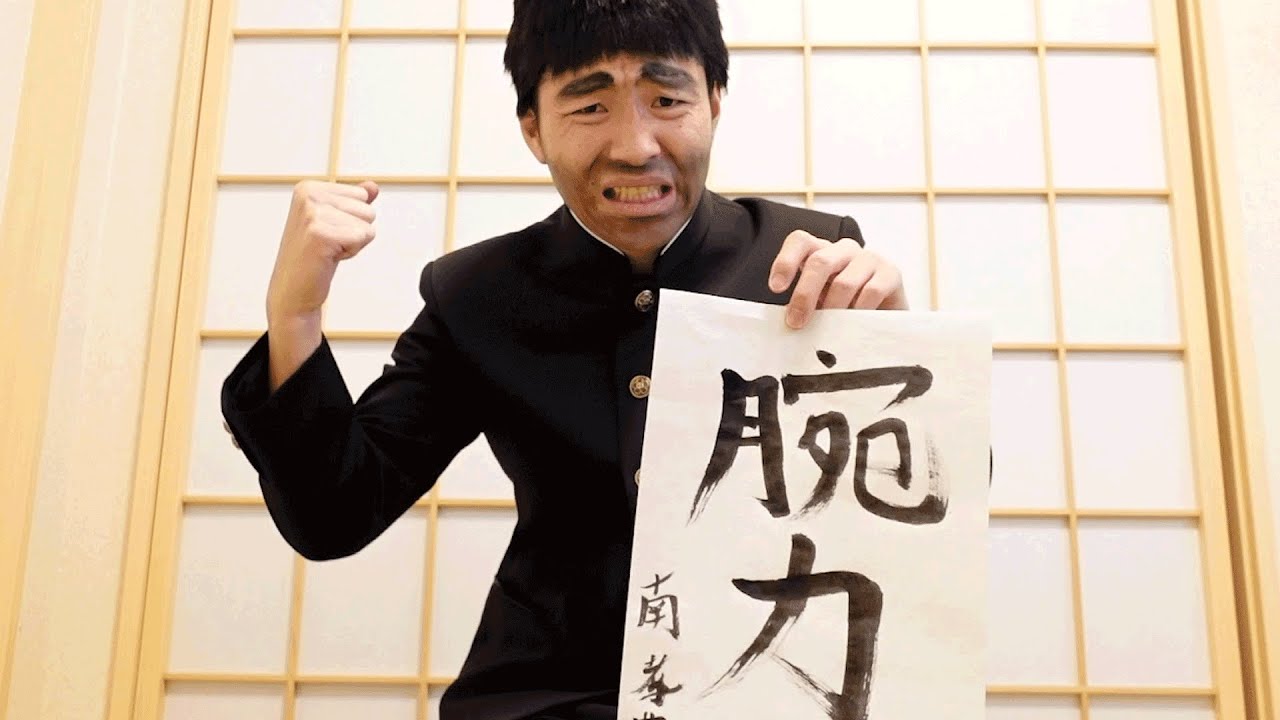 腕力
南